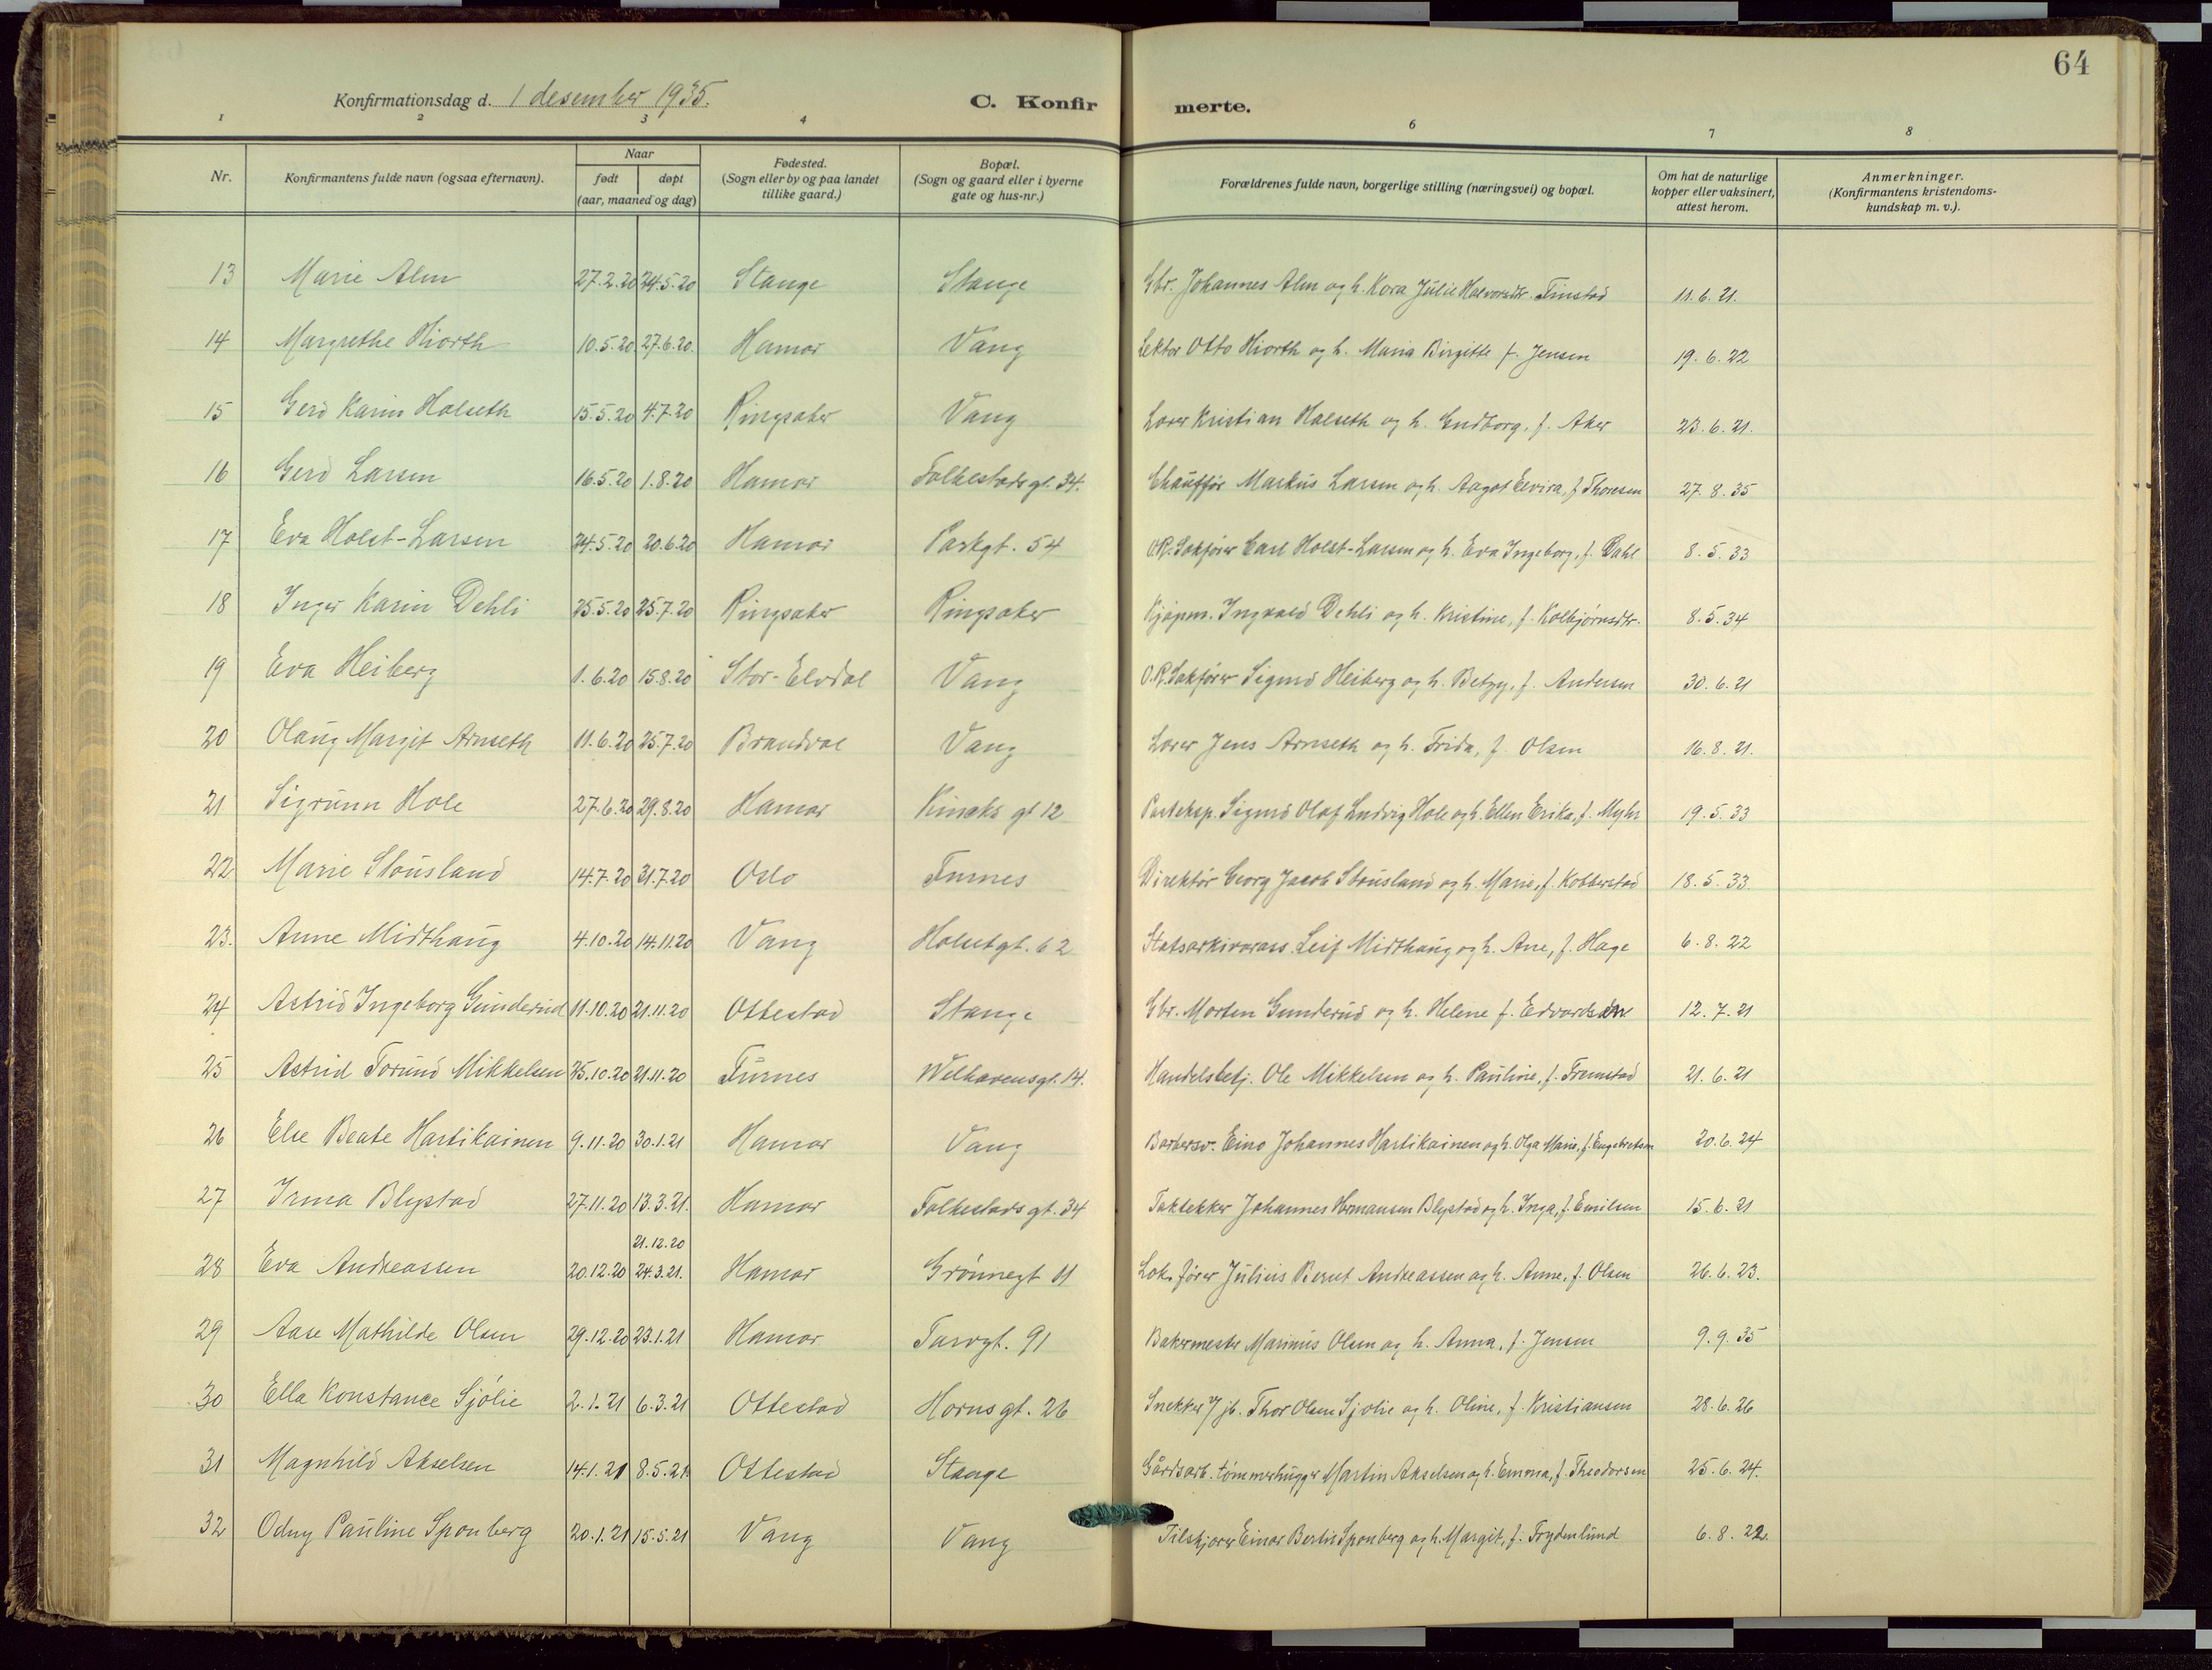 64
Konfirmationsdag d. 1 desember 1935. C. Konfir merte.
1 2 3 4 6 7 8
Nr. Konfirmantens fulde navn (ogsaa efternavn). Naar født døpt (aar, maaned og dag) Fødested. (Sogn eller by og paa landet tillike gaard.) Bopæl. (Sogn og gaard eller i byerne gate og hus-nr.) Forældrenes fulde navn, borgerlige stilling (næringsvei) og bopæl. Om hat de naturlige kopper eller vaksinert, attest herom. Anmerkninger. (Konfirmantens kristendoms-kundskap m. v.).
13 Marie Alm 27.2.20 24.5.20 Stange Stange Gbr. Johannes Alm og h. Kora Julie Halvorsdtr. Finstad 11.6.21.
14 Margrethe Hiorth 10.5.20. 27.6.20. Hamar Vang Lektor Otto Hiorth og h. Maria Birgitte f. Jensen 19.6.22
15 Gerd Karin Halseth 15.5.20 4.7.20 Ringsaker Vang Lærer Kristian Halseth og h. Gudborg, f. Aker 23.6.21.
16 Gerd Larsen 16.5.20 1.8.20 Hamar Folkestadsgt. 34. Chauffør Markus Larsen og h. Aagot Elvira, f. Thoresen 27.8.35
17 Eva Holst-Larsen 24.5.20 20.6.20 Hamar Parkgt. 54 O.R. Sakfører Carl Holst-Larsen og h. Eva Ingeborg, f. Dahl 8.5.33
18 Inger Karin Dehli 25.5.20 25.7.20 Ringsaker Ringsaker Kjøpm. Ingvald Dehli og h. Kristine, f. Kolbjørnsdtr. 8.5.34
19 Eva Heiberg 1.6.20 15.8.20 Stor-Elvdal Vang O.R. Sakfører Sigurd Heiberg og h. Betzy, f. Andersen 30.6.21
20 Olaug Margit Arnseth 11.6.20 25.7.20 Brandval Vang Lærer Jens Arnseth og h. Frida, f. Olsen 16.8.21.
21 Sigrunn Hole 27.6.20 29.8.20 Hamar Kincks gt 12 Posteksp. Sigurd Olaf Ludvig Hole og h. Ellen Erika, f. Myhr 19.5.33
22 Marie Stousland 14.7.20 31.7.20 Oslo Furnes Direktør Georg Jacob Stousland og h. Marie, f. Kobberstad 18.5.33
23. Anne Midthaug 4.10.20 14.11.20 Vang Holsetgt. 62 Statsarkivarass. Leif Midthaug og h. Ane, f. Hage 6.8.22
24 Astrid Ingeborg Gunderud 11.10.20 21.11.20 Ottestad Stange Gbr. Morten Gunderud og h. Helene f. Edvardsen 12.7.21
25 Astrid Torund Mikkelsen 25.10.20 21.11.20 Furnes Welhavensgt. 14. Handelsbetj. Ole Mikkelsen og h. Pauline, f. Fremstad 21.6.21
26 Else Beate Hartikainen 9.11.20 30.1.21 Hamar Vang Barbersv. Eino Johannes Hartikainen og h. Olga Marie, f. Engebretsen 20.6.24
27 Irma Blystad 27.11.20 13.3.21. Hamar Folkestads gt. 34 Taktekker Johannes Hermansen Blystad og h. Inga, f. Emilsen 15.6.21
21.12.20
28 Eva Andreassen 20.12.20 24.3.21. Hamar Grønnegt 11 Lok.fører Julius Bernt Andreassen og h. Anne, f. Olsen 26.6.23.
29 Aase Mathilde Olsen 29.12.20 23.1.21 Hamar Torvgt. 91 Bakermester Marinus Olsen og h. Anna, f. Jensen 9.9.35
30 Ella Konstance Sjølie 2.1.21 6.3.21 Ottestad Hornsgt. 26 Snekker v/ jb. Thor Olsen Sjølie og h. Oline, f. Kristiansen 28.6.26
31 Magnhild Akselsen 14.1.21 8.5.21. Ottestad Stange Gårdsarb. tømmerhugger Martin Akselsen og h. Emma, f. Theodorsen 25.6.24.
32 Odny Pauline Sponberg 20.1.21 15.5.21 Vang Vang Tilskjærer Einar Bertin Sponberg og h. Margit, f. Frydenlund 6.8.22.